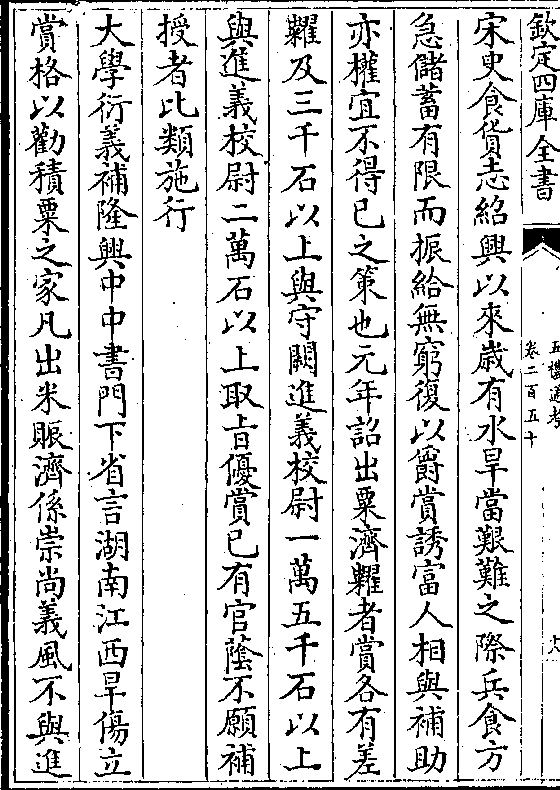 欽定四庫全書
五禮通考
卷二百五十
宋史食貨志紹興以來歲有水旱當艱難之際兵食方
急儲蓄有限而振給無窮復以爵賞誘富人相與補助
亦權宜不得已之策也元年詔出粟濟糶者賞各有差
糶及三千石以上與守闕進義校尉一萬五千石以上
與進義校尉二萬石以上取㫖優賞已有官蔭不願補
授者比類施行
大學衍義補隆興中中書門下省言湖南江西旱傷立
賞格以勸積粟之家凡出米賑濟係崇尚義風不與進